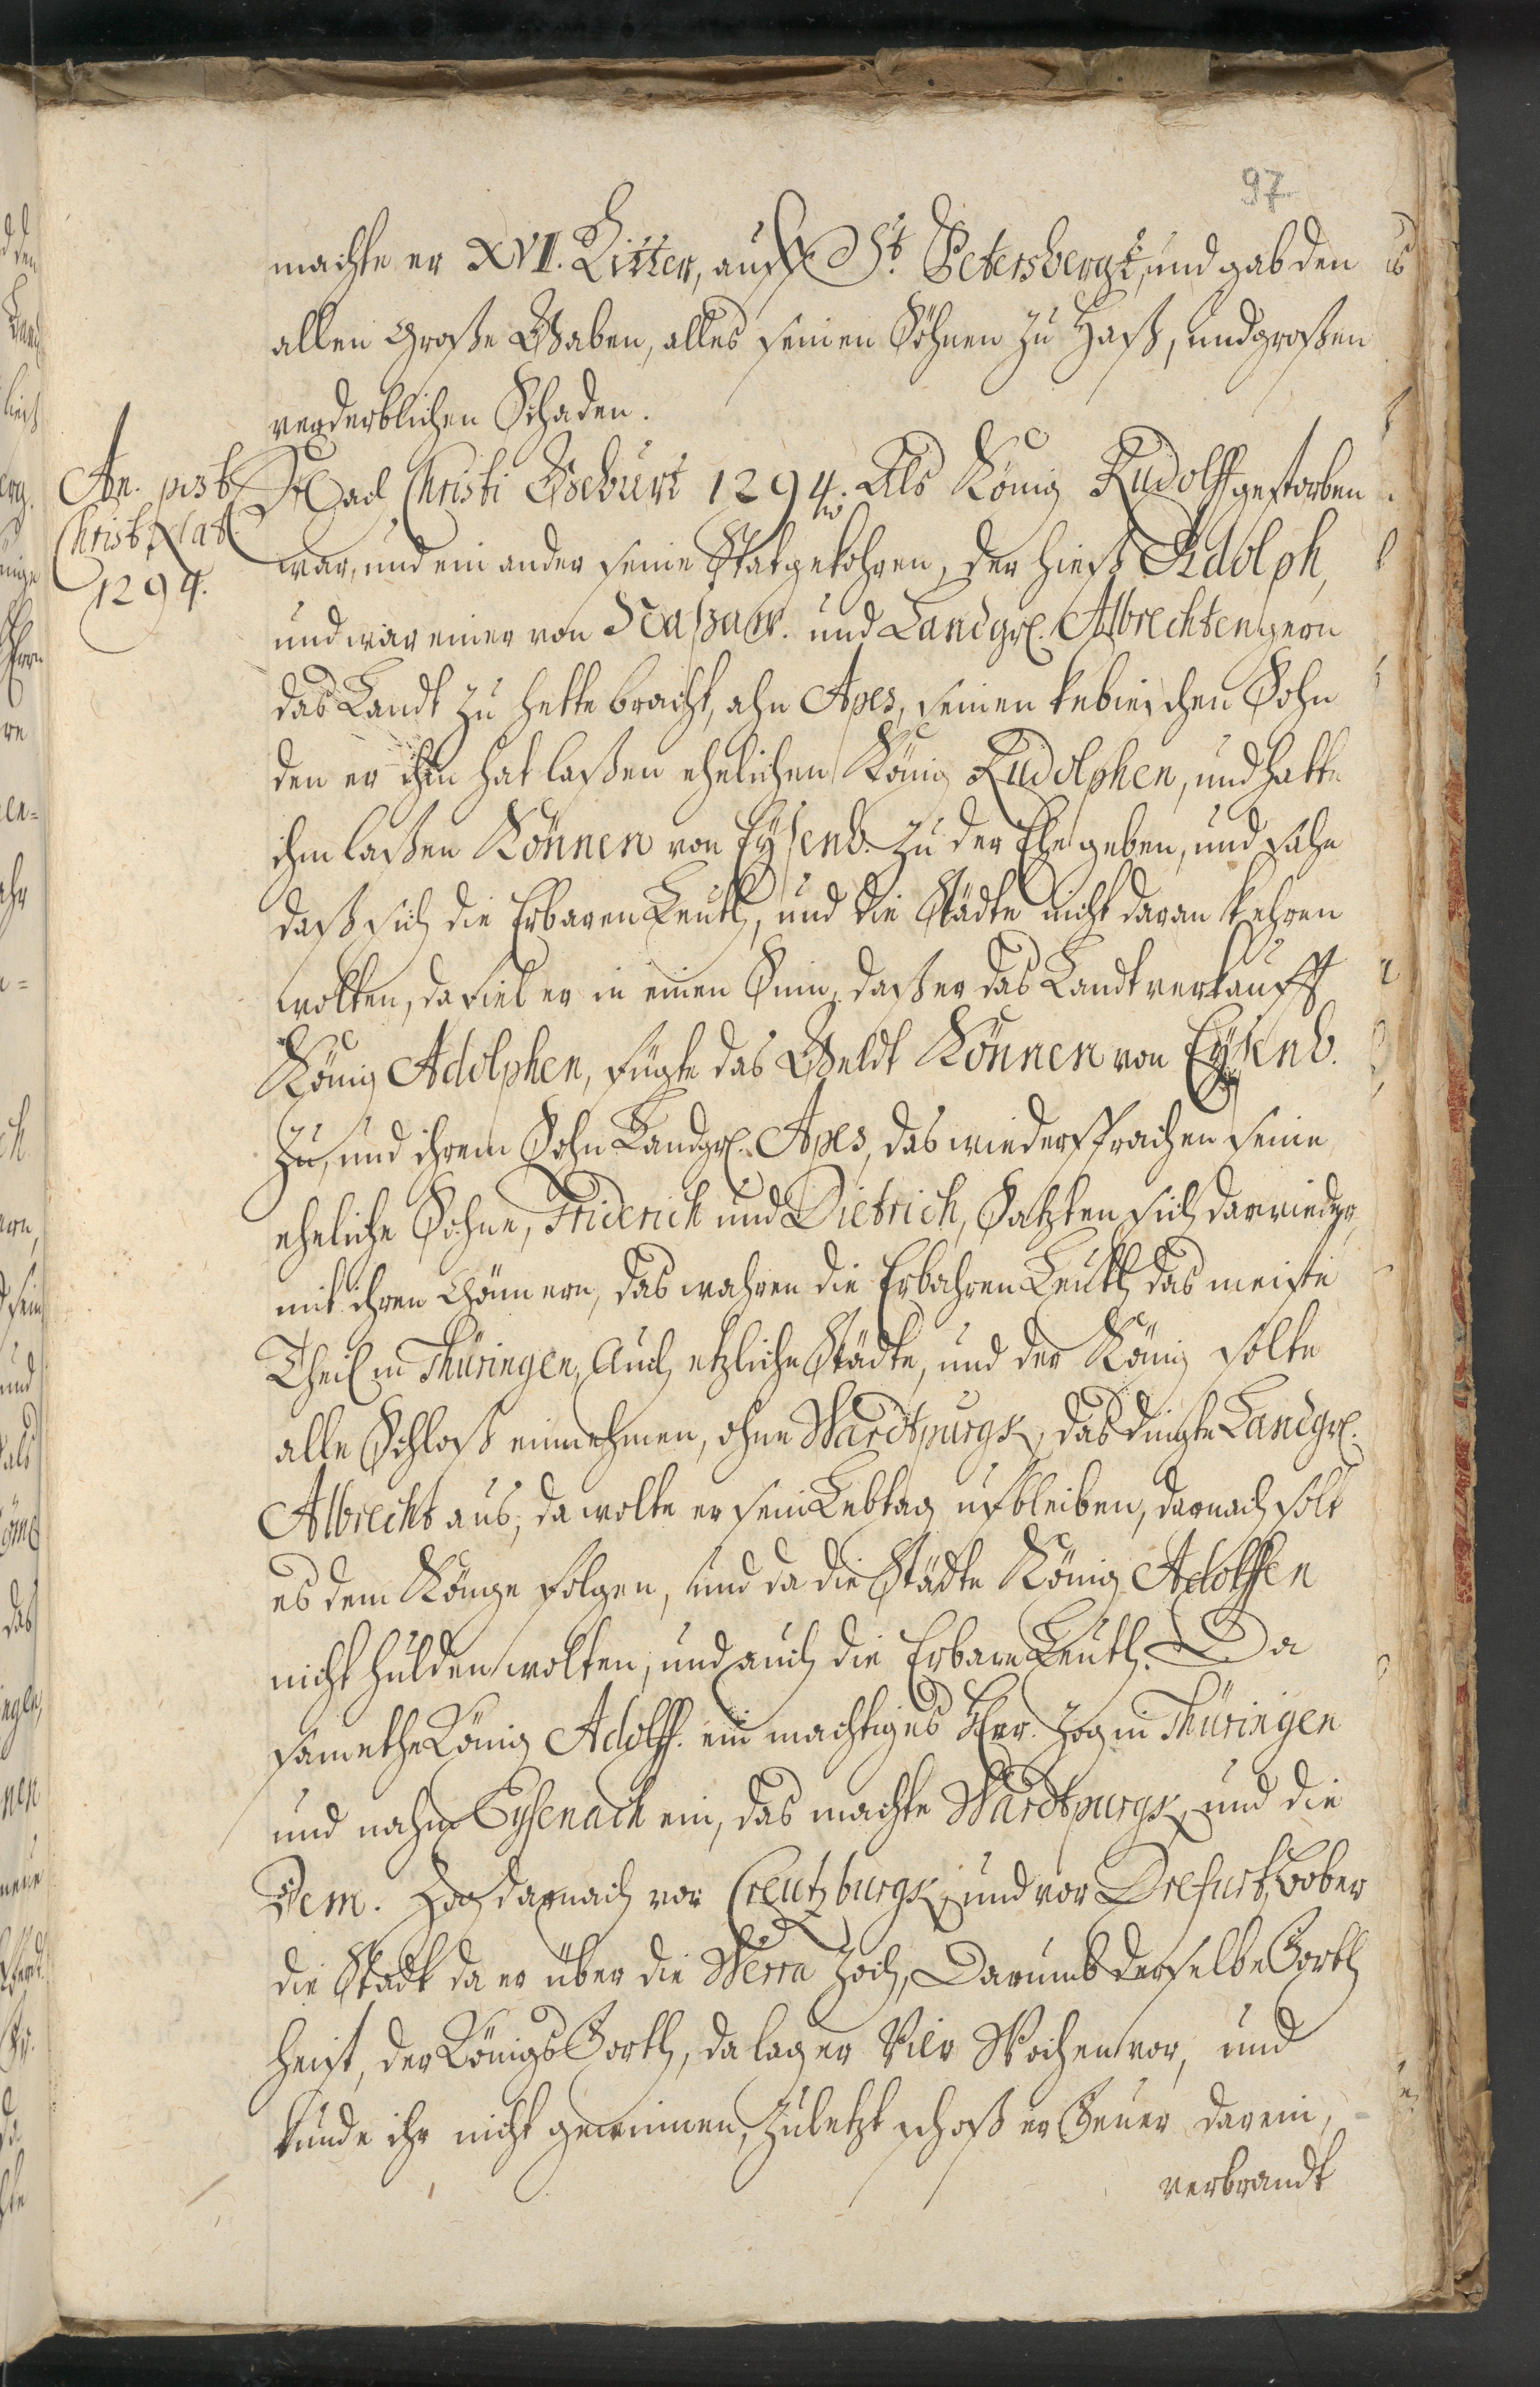 97
machte er XVI. Ritter, auff St. Petersbergk, und gab den
allen Große Gaben, alles seinen Söhnen zu Haß, und großen
verderblichen Schaden.
An. post
Christ. Nat.
1294.
Nach Christi Geburt 1294. Als König Rudolff gestorben
war, und ein ander seine Stat gekohren, der hieß Adolph,
und war einer von Naßaw. und Landgr. Albrechten gern
das Landt zu hette bracht, ahn Apes, seinen kebischen Sohn
den er ihm hat laßen ehelichen König Rudolphen, und hatte
ihm laßen Können von Eysenb. zu der Ehe geben, und sahe
daß sich die Erbaren Leuth, und die Städte nicht daran kehren
wolten, da fiel er in einen Sinn, daß er das Landt verkaufft
König Adolphen, fügte das Geldt Können von Eysenb.
zu, und ihrem Sohn Landgr. Apes, das wiedersprachen seine
eheliche Söhne, Friderich und Dietrich, Satzten sich darwieder,
mit ihren Männern, das wahren die Erbahren Leuth das meiste
Theil in Thüringen, Auch etzliche Städte, und der König solte
alle Schloß einnehmen, ohne Wardtpurgk, das dingte Landgr.
Albrecht aus, da wolte er sein Lebtag uf bleiben, darnach solt
es dem Könge folgen, und da die Städte König Adolffen
nicht hulden wolten, und auch die Erbare Leuth. Da
samethe König Adolff. ein machtiges Heer. Zog in Thüringen
und nahm Eysenach ein, das machte Wardtpurgk, und die
Dem. Zog darnach vor Creutzburgk, und vor Drefurt, Bober
die Stadt da er über die Werra zoch, Darumb derselbe Forth
heist, der Königs Forth, da lag er Vier Wochen vor, und
kunde ihr nicht gewinnen, zuletzt schoß er Feuer darein,
verbrandt